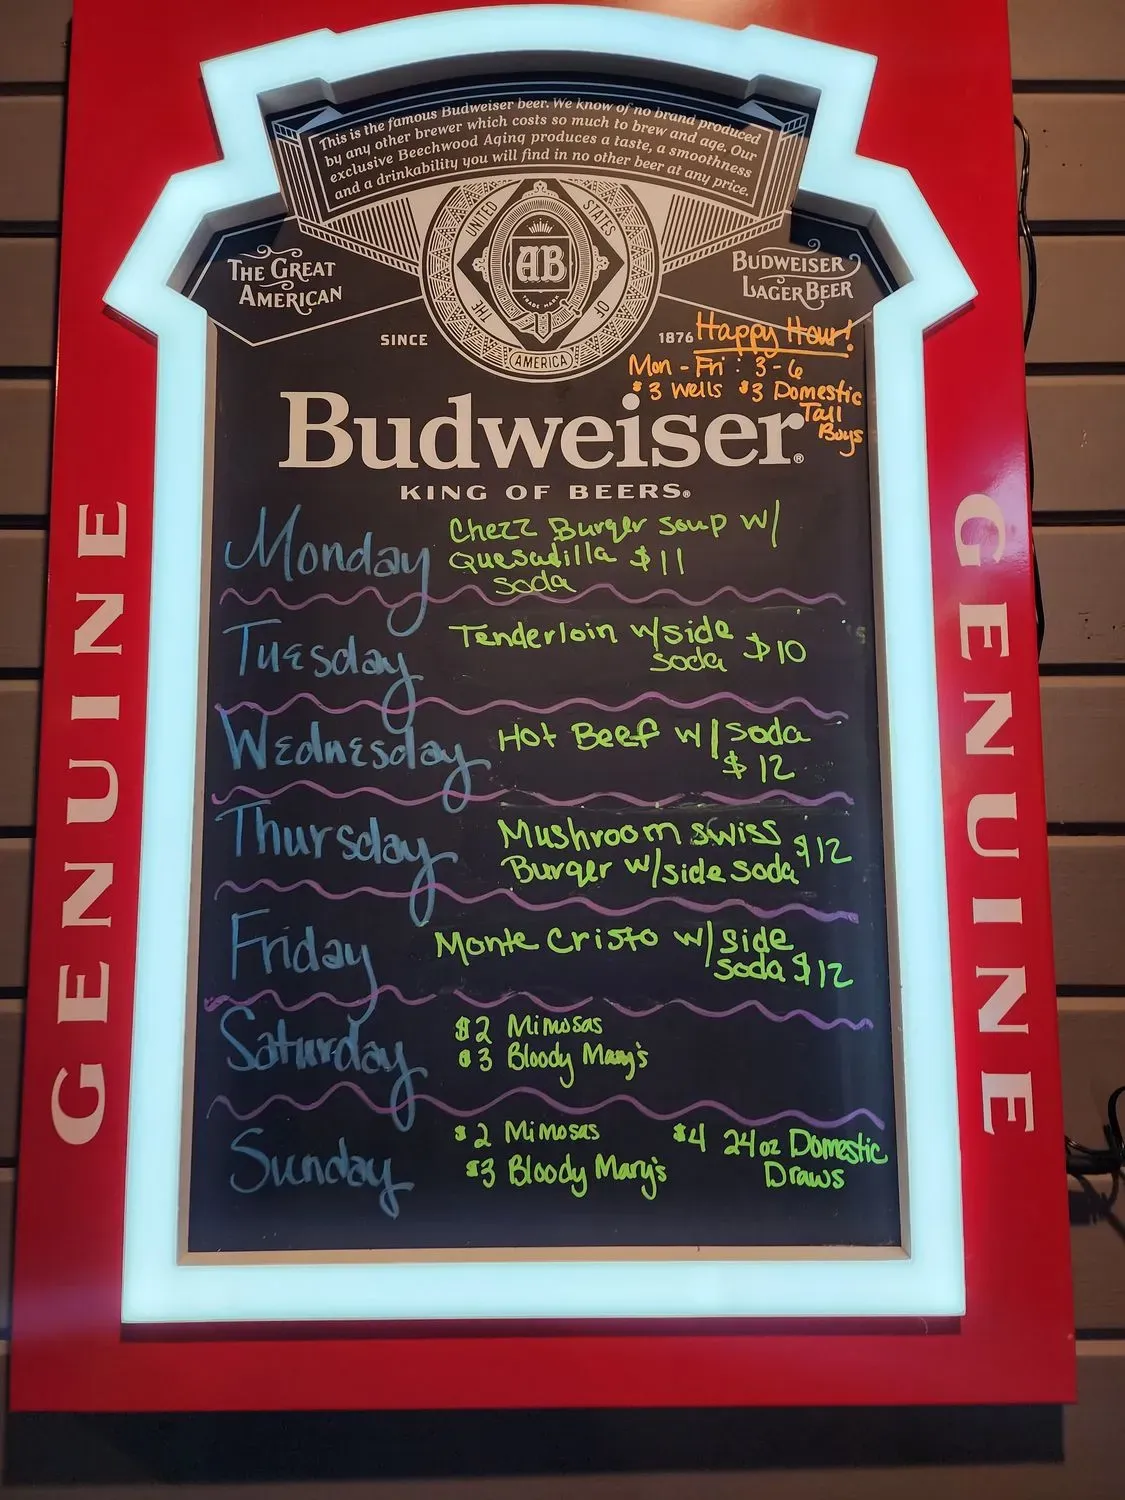 This is the famous Budweiser beer. We know of no brand produced
by any other brewer which costs so much to brew and age. Our
exclusive Beechwood Aging produces a taste, a smoothness
and a drinkability you will find in no other beer at any price.
UNITED STATES
OF
THE
AMERICA
AB
TRADE MARK
THE GREAT
AMERICAN
BUDWEISER
LAGER BEER
SINCE
1876
Happy Hour!
Mon - Fri : 3-6
$3 Wells $3 Domestic
Tall
Boys
Budweiser®
KING OF BEERS®
GENUINE
GENUINE
Monday
Chezz Burger soup w/
Quesadilla $11
soda
Tuesday
Tenderloin w/side
soda $10
Wednesday
Hot Beef w/soda
$12
Thursday
Mushroom swiss
Burger w/side soda $12
Friday
Monte Cristo w/side
soda $12
Saturday
$2 Mimosas
$3 Bloody Mary's
Sunday
$2 Mimosas
$3 Bloody Mary's
$4 24oz Domestic
Draws